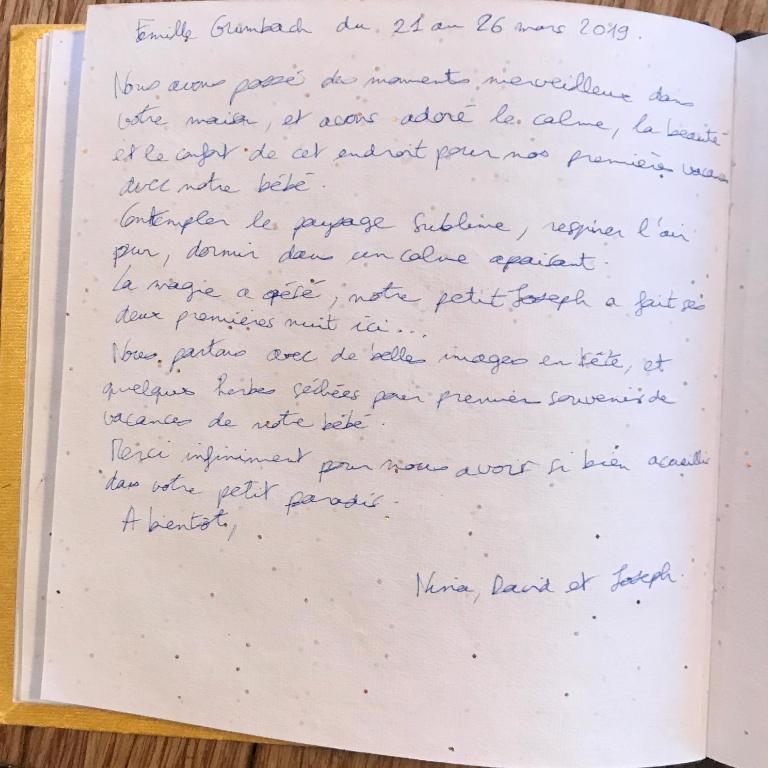 Famille Grumbach du 21 au 26 mars 2019.
Nous avons passé des moments merveilleux dans
votre maison, et avons adoré le calme, la beauté
et le confort de cet endroit pour nos premières vacances
avec notre bébé.
Contempler le paysage sublime, respirer l'air
pur, dormir dans un calme apaisant.
La magie a opéré, notre petit Joseph a fait ses
deux premières nuit ici...
Nous partons avec de belles images en tête, et
quelques herbes séchées pour premier souvenir de
vacances de notre bébé.
Merci infiniment pour nous avoir si bien accueilli
dans votre petit paradis.
A bientôt,
Nina, David et Joseph.